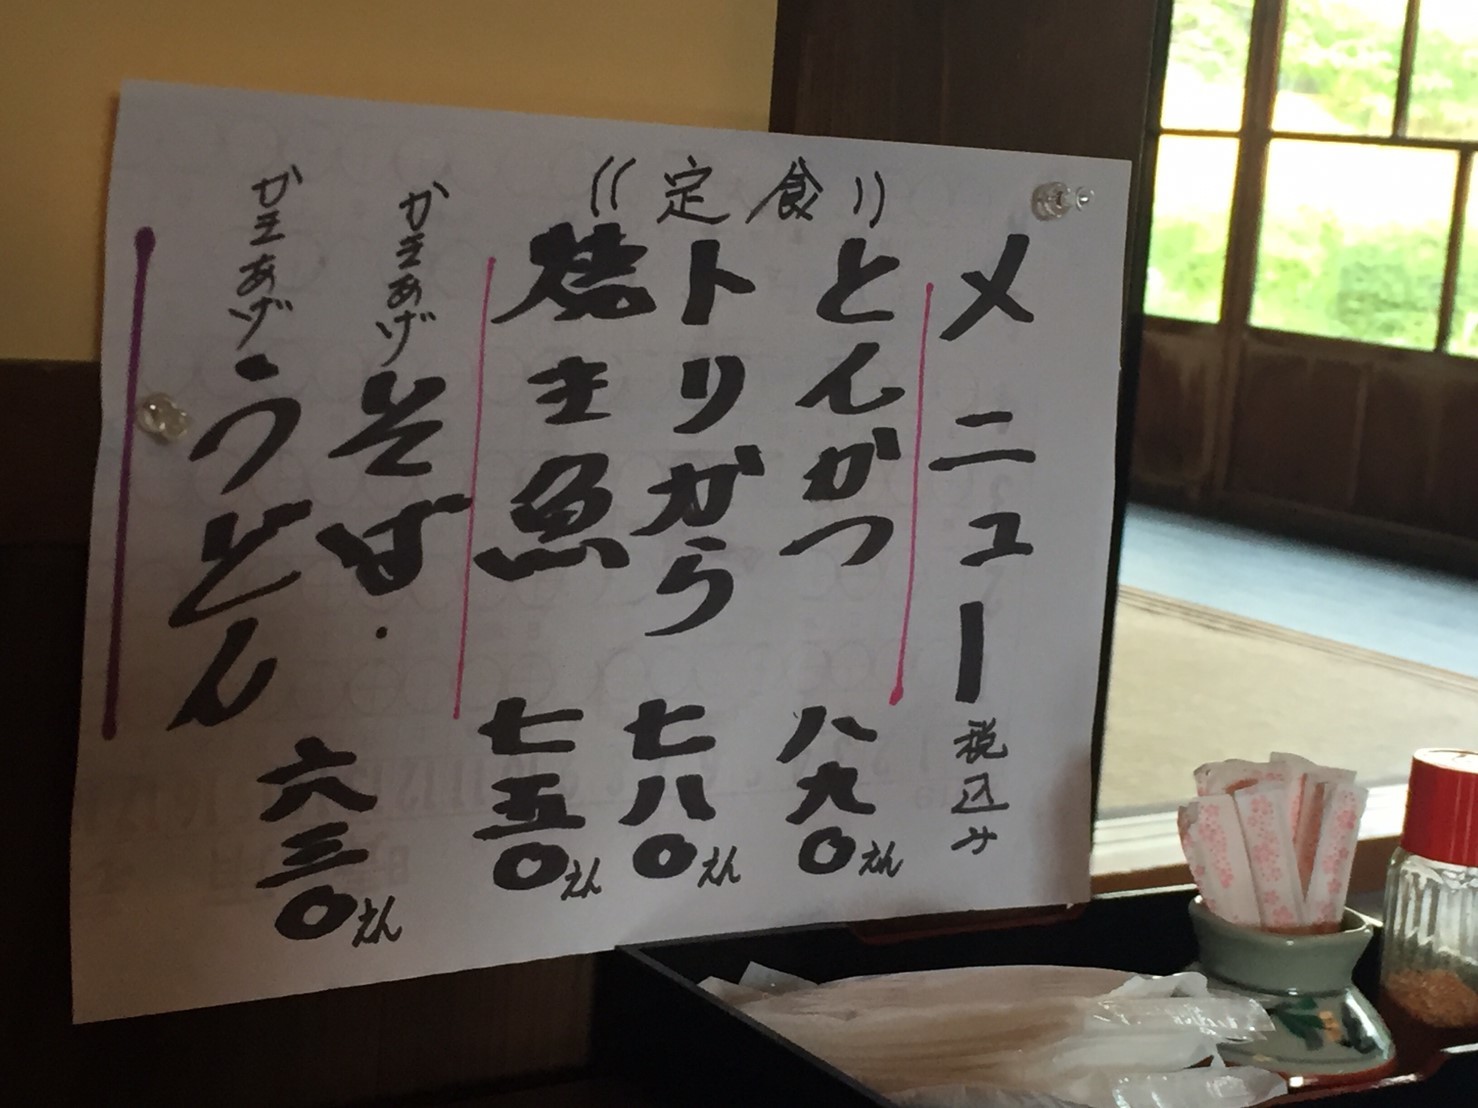 メニュー 税込み
定食
とんかつ 八九〇えん
トリから 七八〇えん
焼き魚 七五〇えん
かきあげそば・
かきあげうどん 六三〇えん